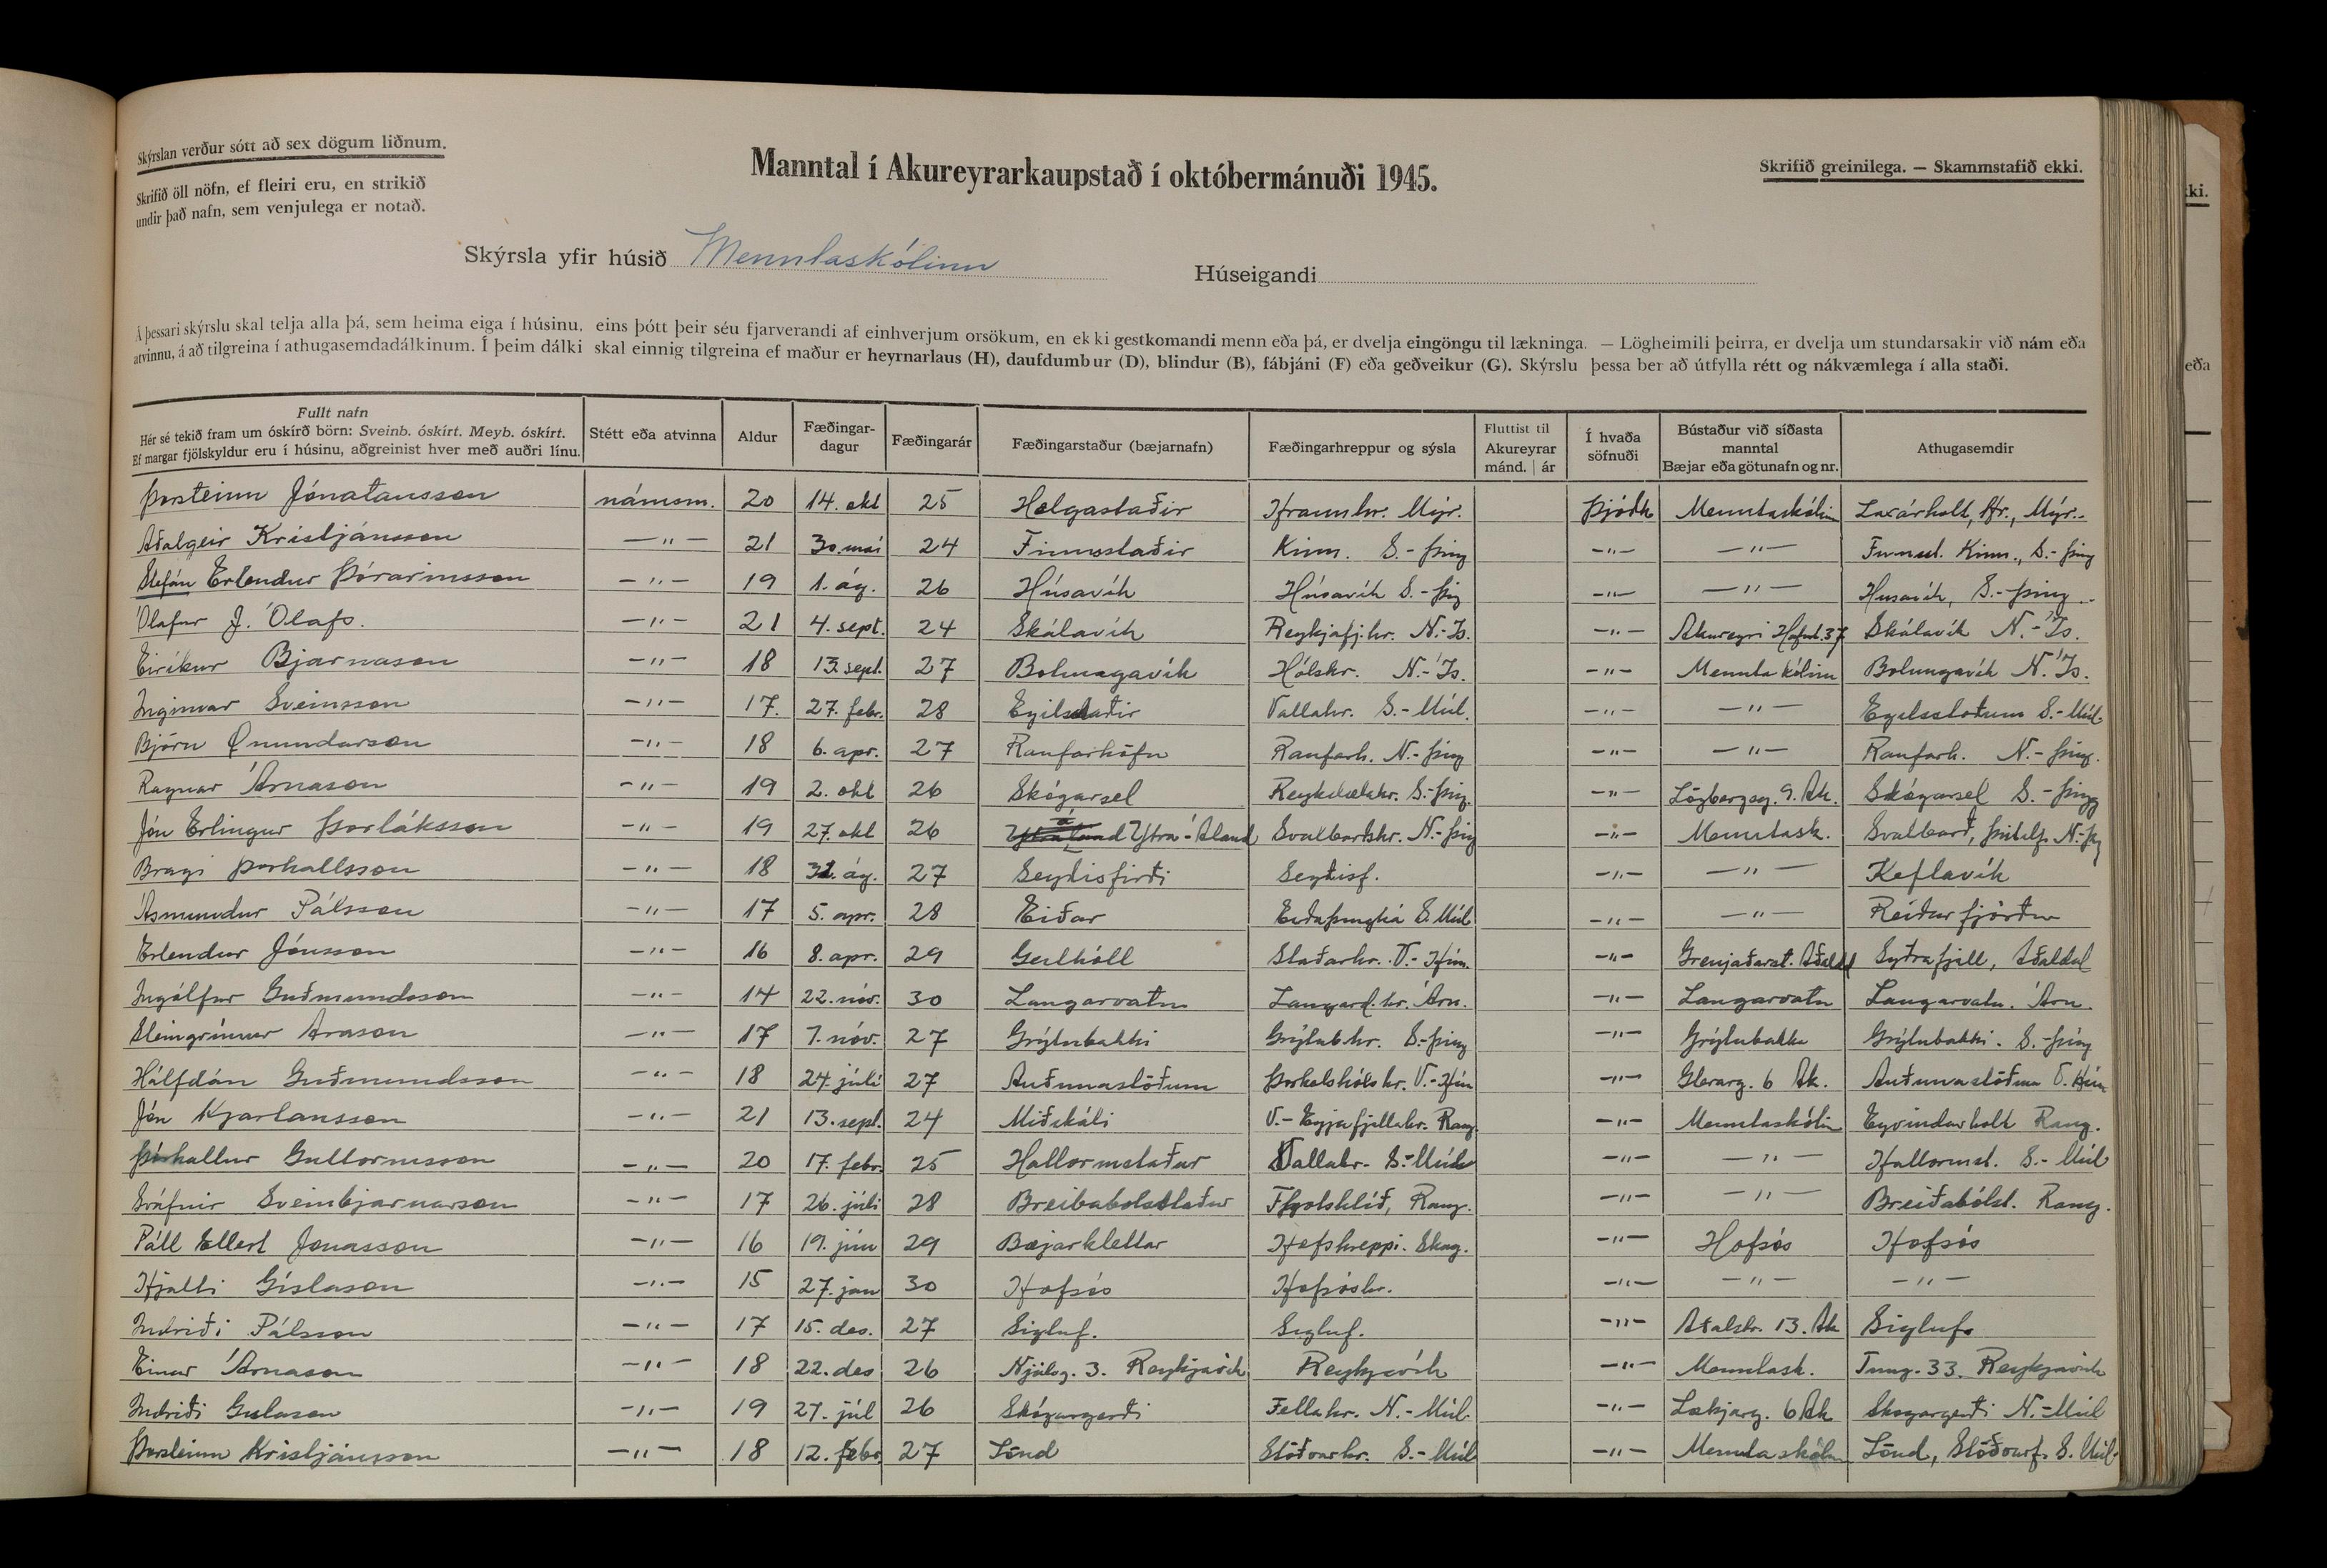 Skýrslan verður sótt að sex dögum liðnum.
Skrifið öll nöfn, ef fleiri eru, en strikið
undir það nafn, sem venjulega er notað.
Manntal í Akureyrarkaupstað í októbermánuði 1945.
Skrifið greinilega. — Skammstafið ekki.
Skýrsla yfir húsið Menntaskólinn Húseigandi
Á þessari skýrslu skal telja alla þá, sem heima eiga í húsinu, eins þótt þeir séu fjarverandi af einhverjum orsökum, en ekki gestkomandi menn eða þá, er dvelja eingöngu til lækninga. — Lögheimili þeirra, er dvelja um stundarsakir við nám eða
atvinnu, á að tilgreina í athugasemdadálkinum. Í þeim dálki skal einnig tilgreina ef maður er heyrnarlaus (H), daufdumbur (D), blindur (B), fábjáni (F) eða geðveikur (G). Skýrslu þessa ber að útfylla rétt og nákvæmlega í alla staði.
Fullt nafn
Hér sé tekið fram um óskírð börn: Sveinb. óskírt. Meyb. óskírt.
Ef margar fjölskyldur eru í húsinu, aðgreinist hver með auðri línu.
Stétt eða atvinna
Aldur
Fæðingar-
dagur
Fæðingarár
Fæðingarstaður (bæjarnafn)
Fæðingarhreppur og sýsla
Fluttist til
Akureyrar
mánd. | ár
Í hvaða
söfnuði
Bústaður við síðasta
manntal
Bæjar eða götunafn og nr.
Athugasemdir
Þorsteinn Jónatansson námsm. 20 14. okt 25 Helgastaðir Hraunhr. Mýr. Þjóðk Menntaskólin Laxárholt, Hr., Mýr.
Aðalgeir Kristjánsson —"— 21 30. maí 24 Finnsstaðir Kinn. S.-Þing —"— —"— Finnsst. Kinn., S.-Þing
Stefán Erlendur Þórarinsson —"— 19 1. ág. 26 Húsavík Húsavík S.-Þig —"— —"— Husavík, S.-Þing
Ólafur J. Ólafs. —"— 21 4. sept. 24 Skálavík Reykjafj.hr. N.-Ís. —"— Akureyri Hafnst. 37 Skálavík N.-Ís.
Eiríkur Bjarnason —"— 18 13. sept. 27 Bolungavík Hólshr. N.-Ís. —"— Menntakólinn Bolungavík N.-Ís.
Inginvar Sveinsson —"— 17. 27. febr. 28 Egilsstaðir Vallahr. S.-Múl. —"— —"— Egilsstoðum S.-Múl
Björn Önundarson —"— 18 6. apr. 27 Raufarhöfn Raufarh. N.-Þing —"— —"— Raufarh. N.-Þing.
Ragnar Árnason —"— 19 2. okt 26 Skógarsel Reykdælahr. S.-Þing. —"— Lögbergsg. 9. Ak. Skógarsel S.-Þing
Jón Erlingur Þorláksson —"— 19 27. okt 26 Ytra-Áland Svalbarðshr. N.-Þing —"— Menntask. Svalbarð, Þistilf. N.-Þg
Bragi Þorhallsson —"— 18 31. ág. 27 Seyðisfirði Seyðisf. —"— —"— Keflavík
Ásmundur Pálsson —"— 17 5. apr. 28 Eiðar Eiðaþinghá S.Múl —"— —"— Reiðurfjörður
Erlendur Jónsson —"— 16 8. apr. 29 Geithóll Staðarhr. V.-Hún. —"— Grenjaðarst. Aðaldal Sytrafjall, Aðaldal
Ingólfur Guðmundsson —"— 14 22. nóv. 30 Laugarvatn Laugard.hr. Árn. —"— Laugarvatn Laugarvatn. Árn.
Steingrímur Arason —"— 17 7. nóv. 27 Grýtubakki Grýtub.hr. S.-Þing —"— Grýtubakka Grýtubakki. S.-Þing
Hálfdán Guðmundsson —"— 18 24. júlí 27 Auðunastöðum Þorkelshólshr. V.-Hún —"— Glerarg. 6 Ak. Auðunastöðum V. Hún
Jón Kjartansson —"— 21 13. sept. 24 Miðskáli V.-Eyjafjallahr. Rang. —"— Menntaskólin Eyvindarholt Rang.
Þórhallur Guttormsson —"— 20 17. febr. 25 Hallormstaður Vallahr. S.-Múla —"— —"— Hallormst. S.-Múl
Sváfnir Sveinbjarnarson —"— 17 26. júlí 28 Breibabolsstaður Fljotshlíð, Rang. —"— —"— Breiðabólst. Rang.
Páll Ellert Jonasson —"— 16 19. jún 29 Bæjarklettar Hofshreppi. Skag. —"— Hofsós Hofsós
Hjalti Gíslason —"— 15 27. jan 30 Hofsós Hofsóshr. —"— —"— —"—
Indriði Pálsson —"— 17 15. des. 27 Sigluf. Sigluf. —"— Aðalstr. 13. Ak Sigluf.
Einar Árnason —"— 18 22. des 26 Njálsg. 3. Reykjavík Reykjavík —"— Menntask. Tung. 33. Reykjavík
Indriði Gislason —"— 19 27. júl 26 Skógargerði Fellahr. N.-Múl. —"— Lækjarg. 6 Ak Skogargerði N.-Múl
Þorsteinn Kristjánsson —"— 18 12. febr 27 Lönd Stöðvarhr. S.-Múl —"— Menntaskólin Lönd, Stöðvarf. S. Múl.